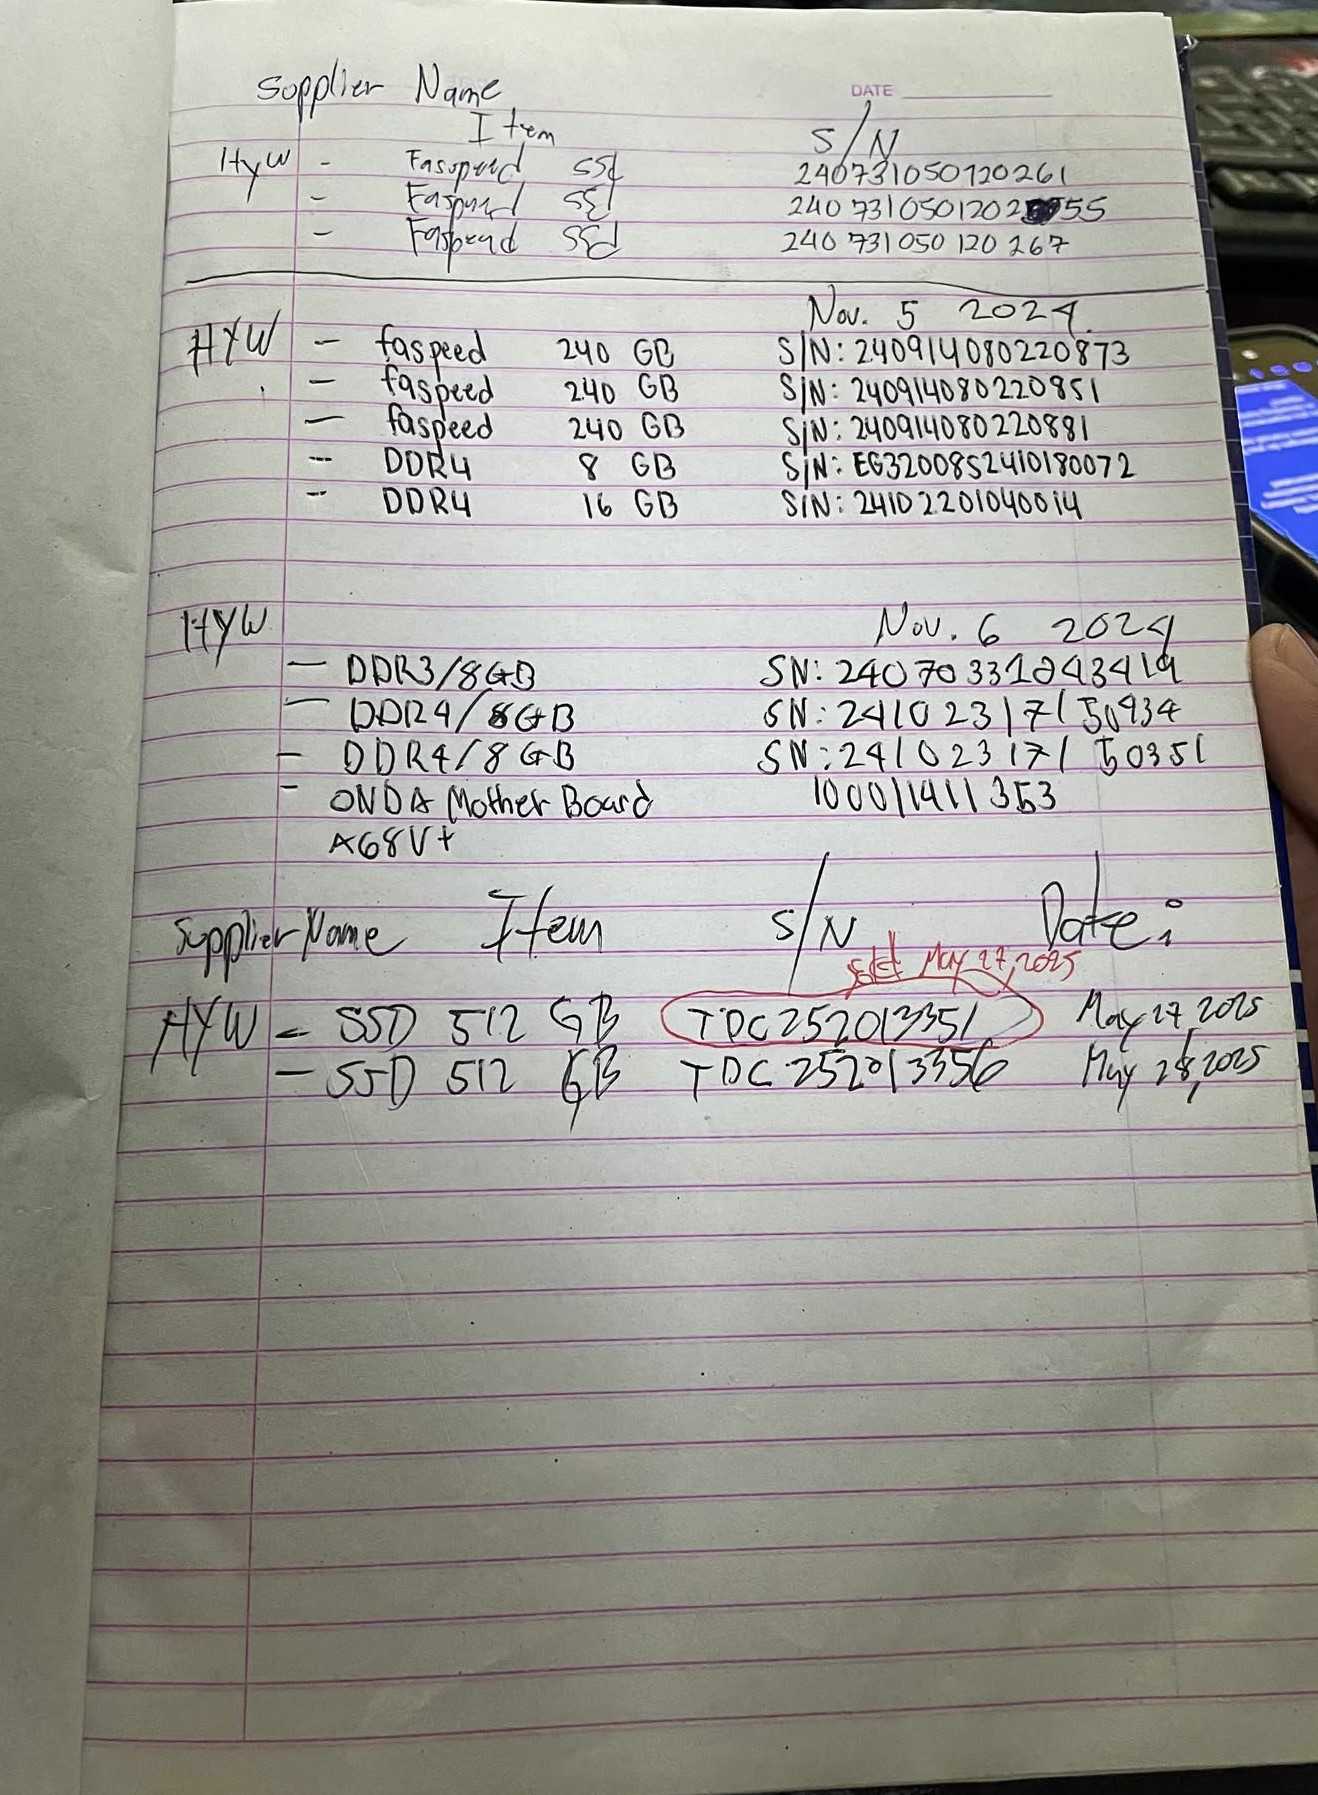 Supplier Name
DATE
Item S/N
HyW - Faspeed SSd 240731050120261
- Faspeed SSd 2407310501202 55
- Faspeed SSd 240731050120267
Nov. 5 2024
HYW - faspeed 240 GB S/N: 240914080220873
- faspeed 240 GB S/N: 240914080220851
- faspeed 240 GB S/N: 240914080220881
-- DDR4 8 GB S/N: EG3200852410180072
-- DDR4 16 GB S/N: 24102201040014
HYW Nov. 6 2024
- DDR3/8GB SN: 24070331243419
- DDR4/8GB SN: 24102317150934
- DDR4/8GB SN: 241023171 50351
- ONDA Mother Board 100011411353
A68V+
Supplier Name Item S/N Date:
sold May 27, 2025
HYW - SSD 512 GB TDC252013351 May 27, 2025
- SSD 512 GB TDC252013356 May 28, 2025